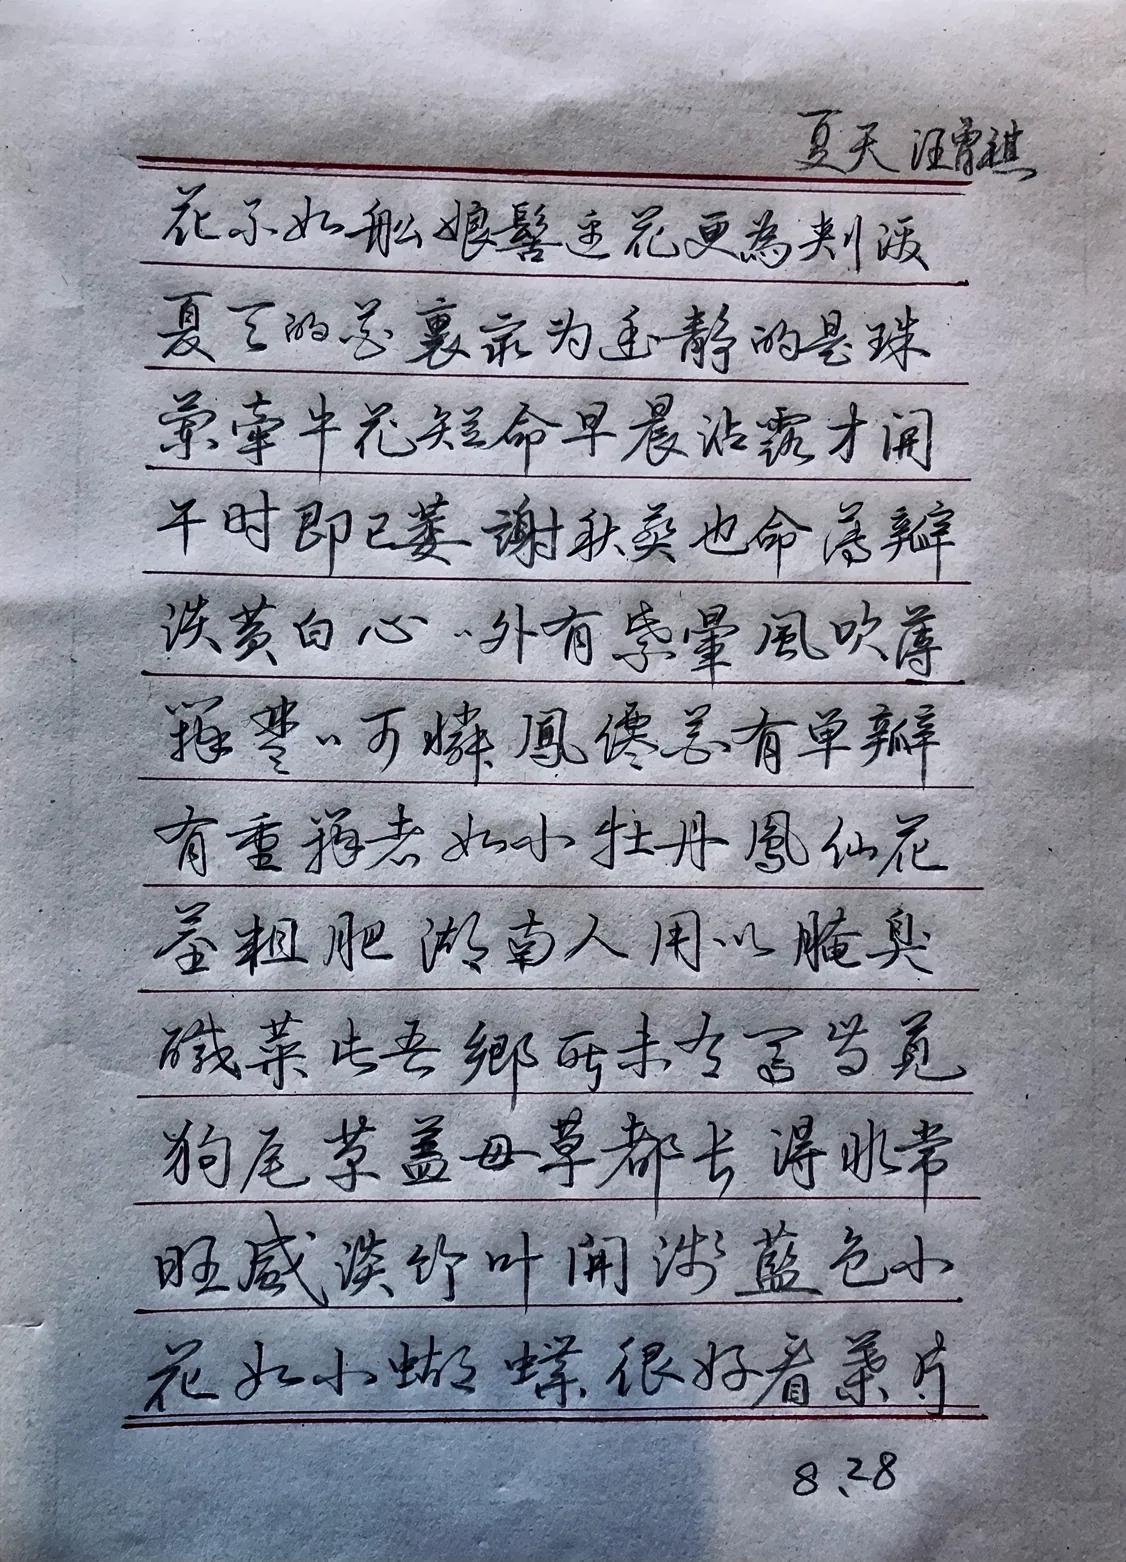 夏天 汪曾祺
花不如船娘髻边花更為刺泼
夏天的花裏最为幽静的是珠
蘭牵牛花短命早晨沾露才開
午时即已萎謝秋葵也命薄瓣
淡黄白心〻外有紫暈風吹薄
瓣楚〻可憐鳳僊花有单瓣
有重瓣者如小牡丹鳳仙花
茎粗肥湖南人用以腌臭
鹹菜此吾鄉所未有馬齿苋
狗尾草益母草都长得非常
旺盛淡竹叶開浅藍色小
花如小蝴蝶很好看葉片
8、28